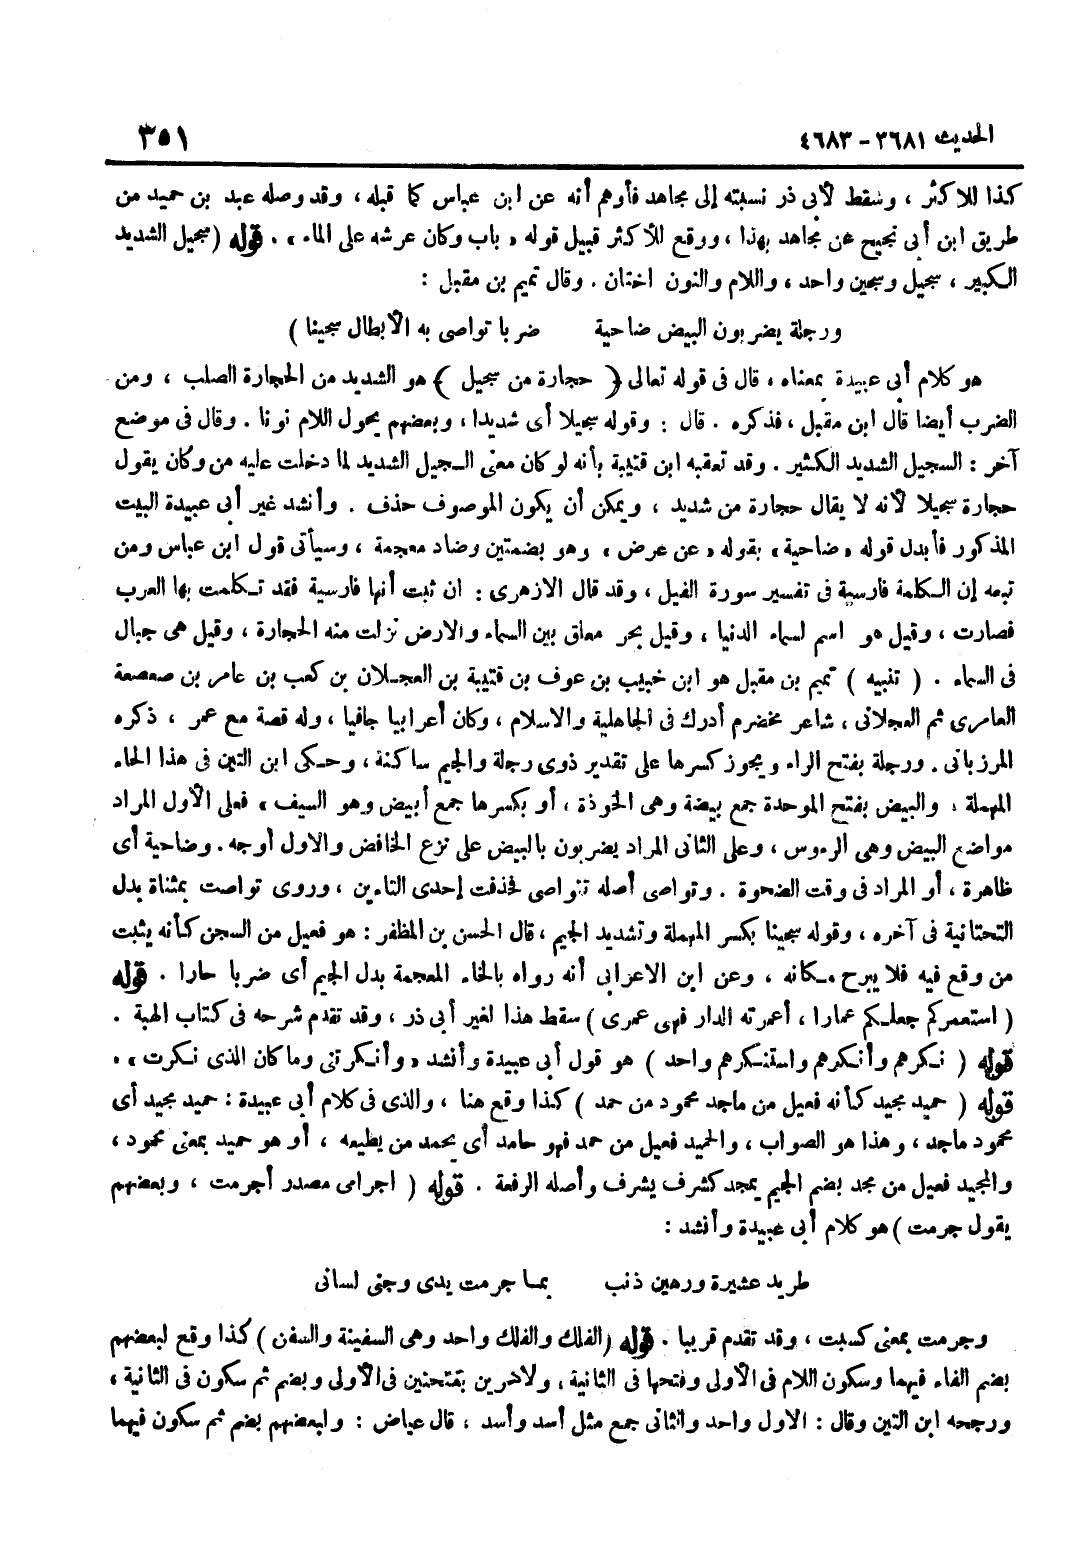 الحديث ٣٦٨١ - ٤٦٨٣
٣٥١
كذا للاكثر ، وسقط لأبى ذر نسبته إلى مجاهد فأوهم أنه عن ابن عباس كما قبله ، وقد وصله عبد بن حميد من
طريق ابن أبى نجيح عن مجاهد بهذا ، ووقع للأكثر قبيل قوله « باب وكان عرشه على الماء » . قوله ( سجيل الشديد
الكبير ، سجيل وسجين واحد ، واللام والنون اختان . وقال تميم بن مقبل :
ورجلة يضربون البيض ضاحية ضربا تواصى به الأبطال سجينا )
هو كلام أبى عبيدة بمعناه ، قال فى قوله تعالى ﴿ حجارة من سجيل ﴾ هو الشديد من الحجارة الصلب ، ومن
الضرب أيضا قال ابن مقبل ، فذكره . قال : وقوله سجيلا أى شديدا ، وبعضهم يحول اللام نونا . وقال فى موضع
آخر : السجيل الشديد الكثير . وقد تعقبه ابن قتيبة بأنه لو كان معنى السجيل الشديد لما دخلت عليه من وكان يقول
حجارة سجيلا لأنه لا يقال حجارة من شديد ، ويمكن أن يكون الموصوف حذف . وأنشد غير أبى عبيدة البيت
المذكور فأبدل قوله « ضاحية » بقوله « عن عرض » وهو بضمتين وضاد معجمة ، وسيأتى قول ابن عباس ومن
تبعه إن الكلمة فارسية فى تفسير سورة الفيل ، وقد قال الازهرى : ان ثبت أنها فارسية فقد تكلمت بها العرب
فصارت ، وقيل هو اسم لسماء الدنيا ، وقيل بحر معلق بين السماء والارض نزلت منه الحجارة ، وقيل هى جبال
فى السماء . ( تنبيه ) تميم بن مقبل هو ابن خبيب بن عوف بن قتيبة بن العجلان بن كعب بن عامر بن صعصعة
العامرى ثم العجلانى ، شاعر مخضرم أدرك فى الجاهلية والاسلام ، وكان أعرابيا جافيا ، وله قصة مع عمر ، ذكره
المرزبانى . ورجلة بفتح الراء ويجوز كسرها على تقدير ذوى رجلة والجيم ساكنة ، وحكى ابن التين فى هذا الحاء
المهملة ، والبيض بفتح الموحدة جمع بيضة وهى الخوذة ، أو بكسرها جمع أبيض وهو السيف ، فعلى الأول المراد
مواضع البيض وهى الرءوس ، وعلى الثانى المراد يضربون بالبيض على نزع الخافض والاول أوجه . وضاحية أى
ظاهرة ، أو المراد فى وقت الضحوة . وتواصى أصله تتواصى فحذفت إحدى التاءين ، وروى تواصت بمثناة بدل
التحتانية فى آخره ، وقوله سجينا بكسر المهملة وتشديد الجيم ، قال الحسن بن المظفر : هو فعيل من السجن كأنه يثبت
من وقع فيه فلا يبرح مكانه ، وعن ابن الاعرابى أنه رواه بالخاء المعجمة بدل الجيم أى ضربا حارا . قوله
( استعمركم جعلكم عمارا ، أعمرته الدار فهى عمرى ) سقط هذا لغير أبى ذر ، وقد تقدم شرحه فى كتاب الهبة .
قوله ( نكرهم وأنكرهم واستنكرهم واحد ) هو قول أبى عبيدة وأنشد « وأنكرتنى وما كان الذى نكرت » .
قوله ( حميد مجيد كأنه فعيل من ماجد محمود من حمد ) كذا وقع هنا ، والذى فى كلام أبى عبيدة : حميد مجيد أى
محمود ماجد ، وهذا هو الصواب ، والحميد فعيل من حمد فهو حامد أى يحمد من يطيعه ، أو هو حميد بمعنى محمود ،
والمجيد فعيل من مجد بضم الجيم يمجد كشرف يشرف وأصله الرفعة . قوله ( اجرامى مصدر أجرمت ، وبعضهم
يقول جرمت ) هو كلام أبى عبيدة وأنشد :
طريد عشيرة ورهين ذنب بما جرمت يدى وجنى لسانى
وجرمت بمعنى كسبت ، وقد تقدم قريبا . قوله ( الفلك والفلك واحد وهى السفينة والسفن ) كذا وقع لبعضهم
بضم الفاء فيهما وسكون اللام فى الأولى وفتحها فى الثانية ، ولآخرين بفتحتين فى الأولى وبضم ثم سكون فى الثانية ،
ورجحه ابن التين وقال : الاول واحد والثانى جمع مثل أسد وأسد ، قال عياض : ولبعضهم بضم ثم سكون فيهما